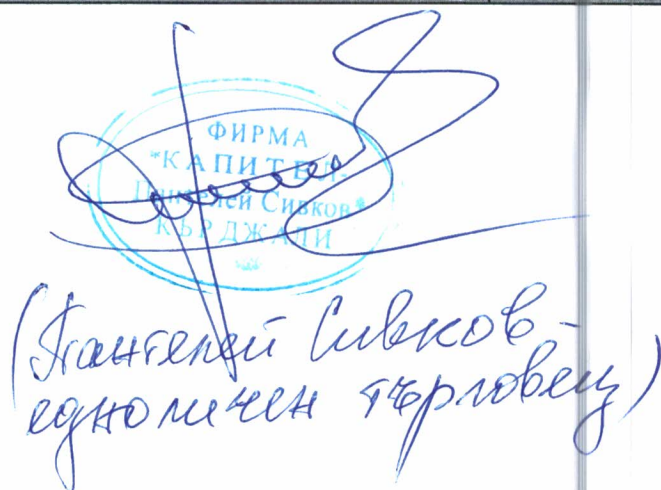 ФИРМА
*КАПИТЕЛ-
Пантелей Сивков*
КЪРДЖАЛИ
(Пантелей Сивков -
едноличен търговец)